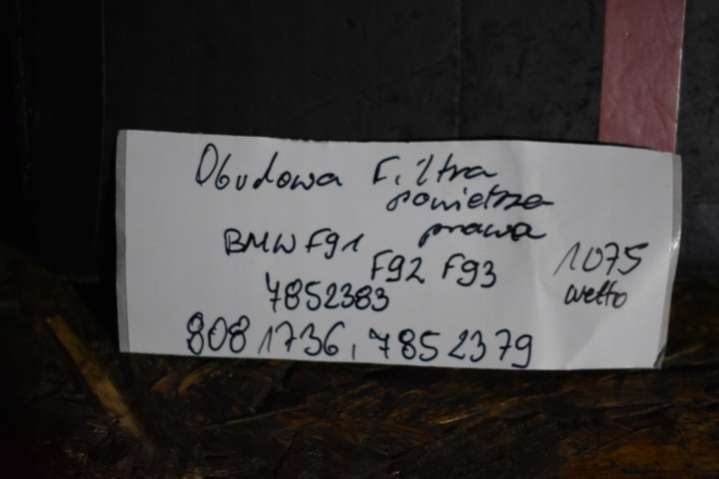 Obudowa Filtra
powietrza
prawa
BMW F91
F92 F93
7852383
8081736, 7852379
1075
netto